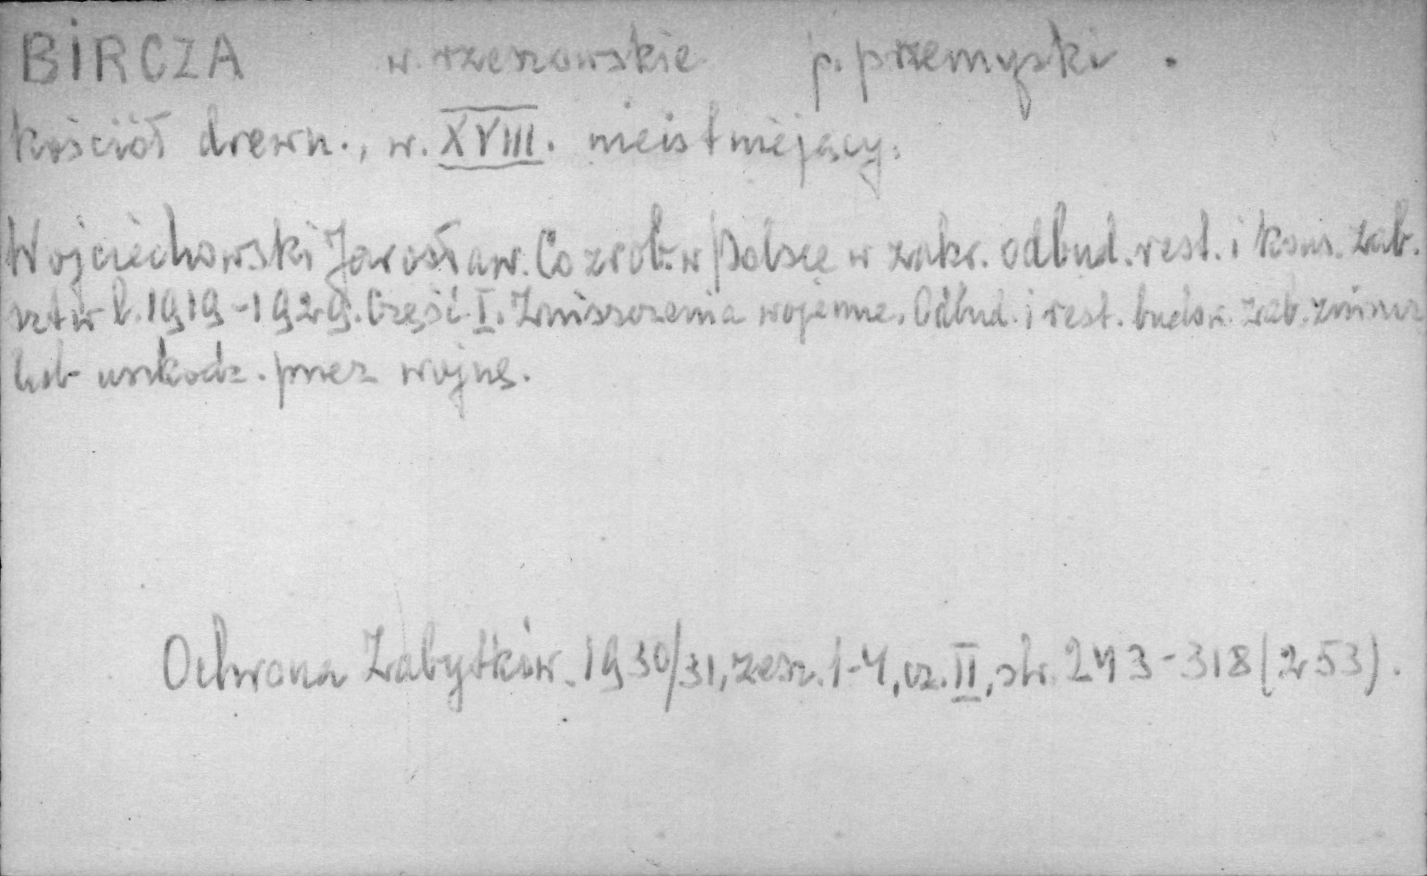 BIRCZA w. rzeszowskie p. przemyski.
Kościół drewn., w. XVIII. nieistniejący.
Wojciechowski Jarosław. Co zrob. w Polsce w zakr. odbud. rest. i kons. zab.
szt. w l. 1919-1929. Część I. Zniszczenia wojenne. Odbud. i rest. budow. zab. zniszcz
lub uszkodz. przez wojnę.
Ochrona Zabytków. 1930/31, zesz. 1-4, cz. II, str. 243-318 (253).